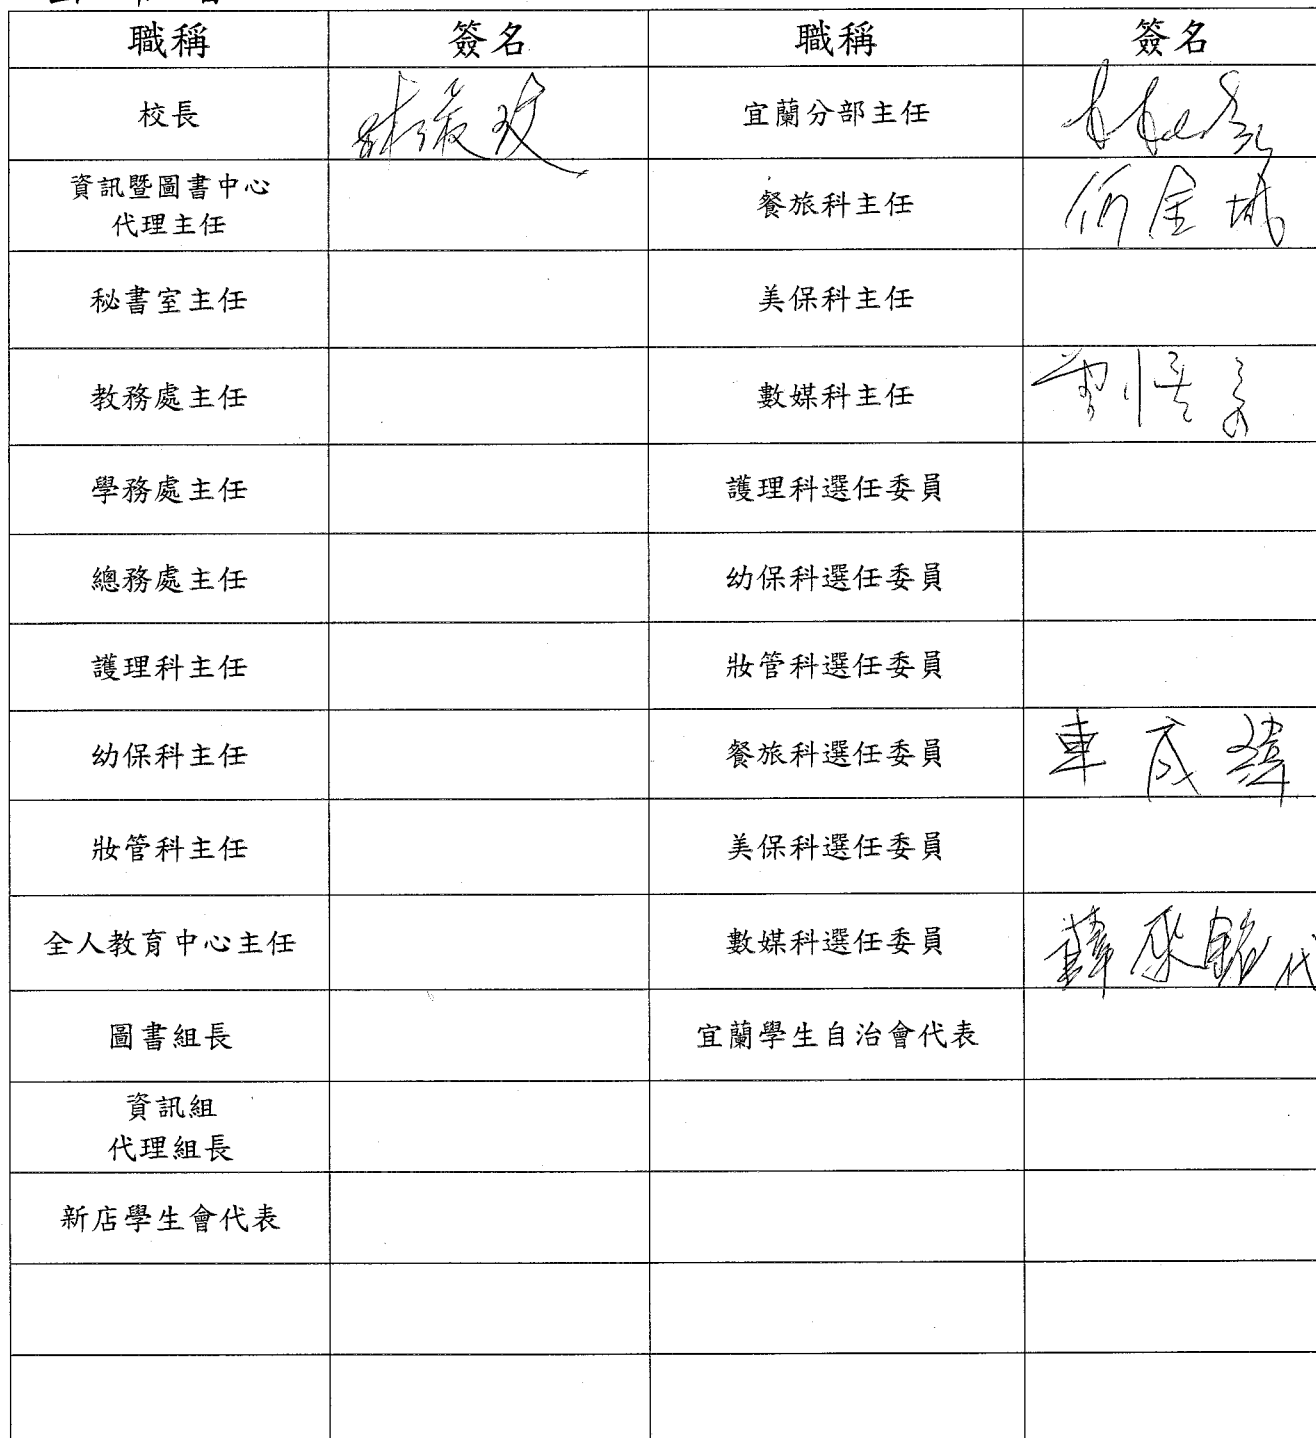 職稱 簽名 職稱 簽名
校長 宜蘭分部主任
資訊暨圖書中心
代理主任 餐旅科主任 何金城
秘書室主任 美保科主任
教務處主任 數媒科主任
學務處主任 護理科選任委員
總務處主任 幼保科選任委員
護理科主任 妝管科選任委員
幼保科主任 餐旅科選任委員 車成緯
妝管科主任 美保科選任委員
全人教育中心主任 數媒科選任委員 代
圖書組長 宜蘭學生自治會代表
資訊組
代理組長
新店學生會代表